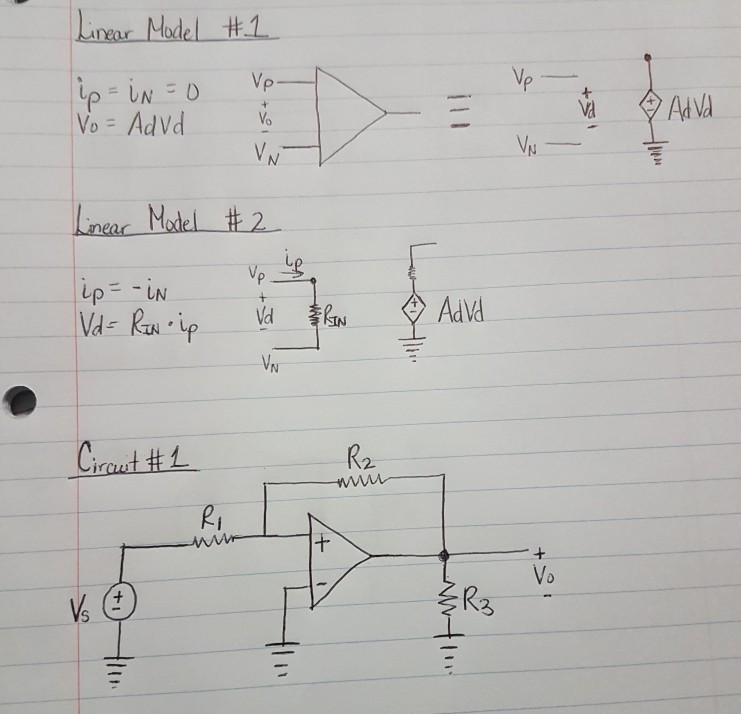 Linear Model #1
ip = iN = 0
Vo = AdVd
VP
+
Vo
-
VN
≡
VP
+
Vd
-
VN
+
-
AdVd
Linear Model #2
ip = -iN
Vd = RIN · ip
VP
ip
+
Vd
-
VN
RIN
+
-
AdVd
Circuit #1
R2
R1
+
-
Vs
+
-
+
Vo
-
R3